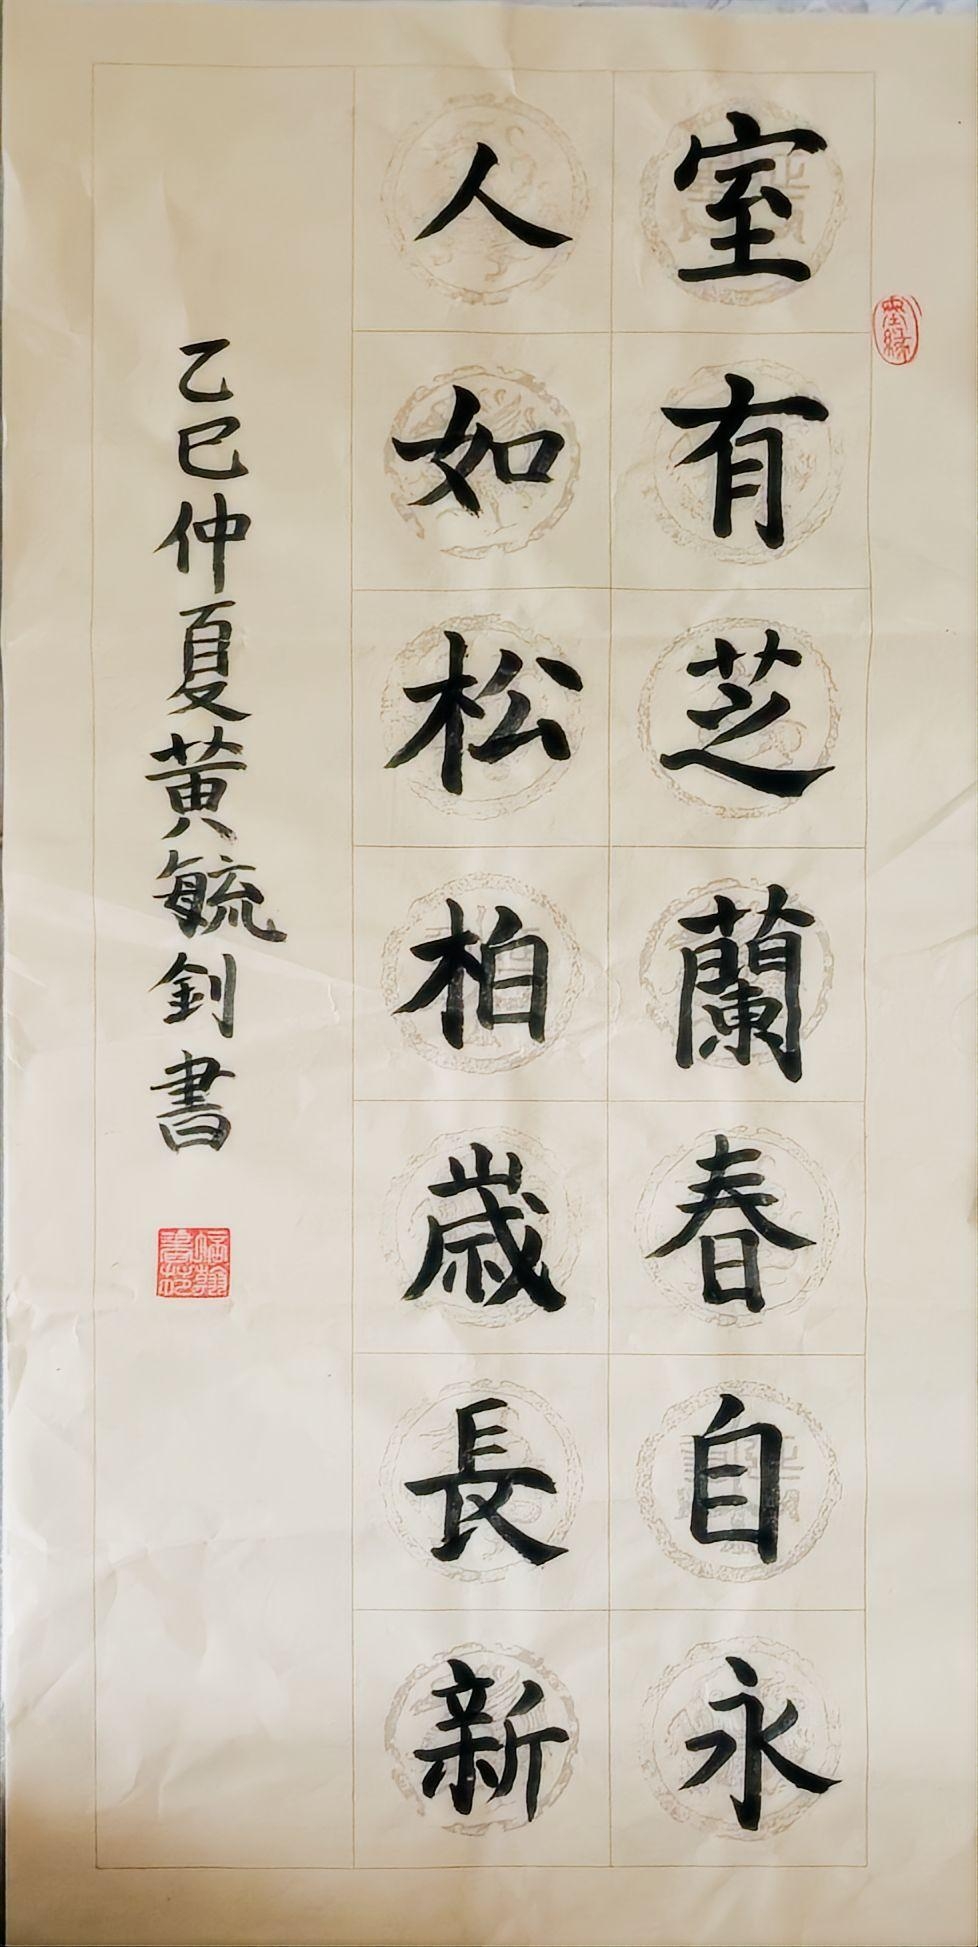 室有芝蘭春自永
人如松柏歲長新
乙巳仲夏黃毓釗書
墨緣